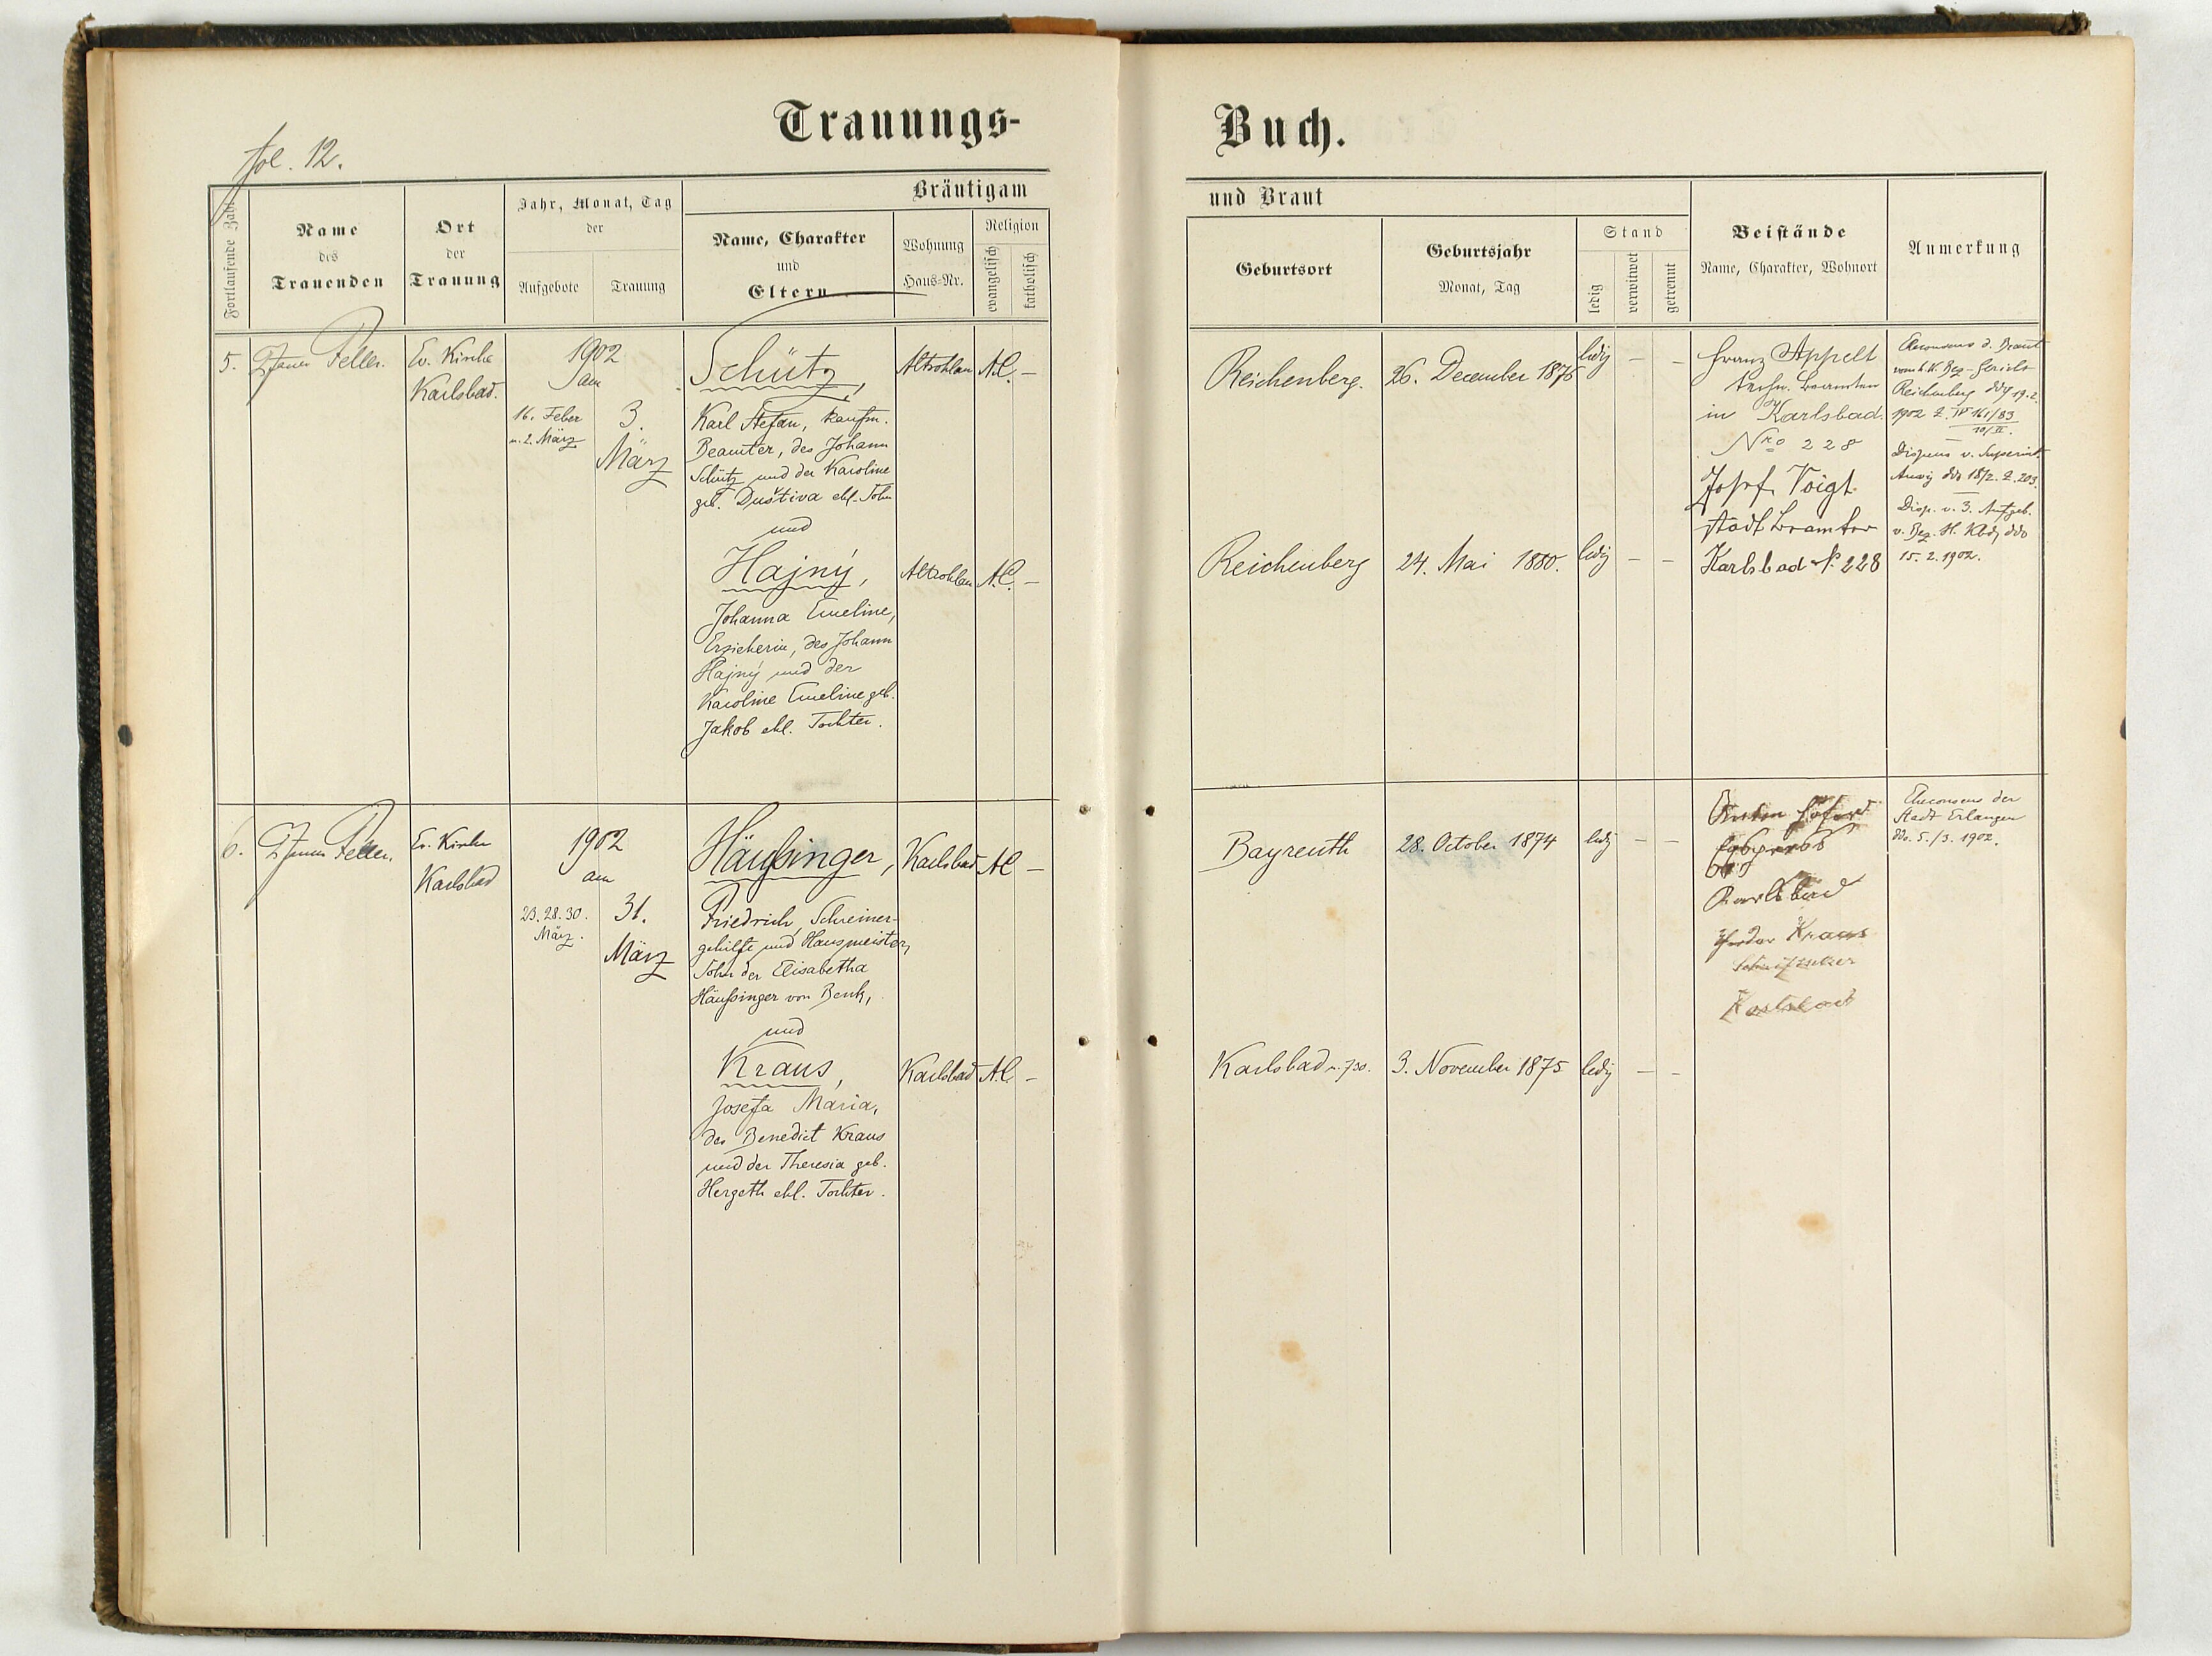 Trauungs-
Buch.
fol. 12.
Fortlaufende Zahl
Name
des
Trauenden
Ort
der
Trauung
Jahr, Monat, Tag
der
Aufgebote
Trauung
Bräutigam
Name, Charakter
und
Eltern
Wohnung
Haus-Nr.
Religion
evangelisch
katholisch
und Braut
Geburtsort
Geburtsjahr
Monat, Tag
Stand
ledig
verwitwet
getrennt
Beistände
Name, Charakter, Wohnort
Anmerkung
5.
Pfarrer Feller.
Ev. Kirche
Karlsbad.
1902
am
16. Feber
u. 2. März
3.
März
Schütz,
Karl Stefan, kaufm.
Beamter, des Johann
Schütz und der Karoline
geb. Duštiva ehl. Sohn
und
Hajný,
Johanna Emeline,
Erzieherin, des Johann
Hajný und der
Karoline Emeline geb.
Jakob ehl. Tochter.
Altrohlau
A.C. –
Altrohlau
A.C. –
Reichenberg.
26. December 1876
ledig – –
Reichenberg
24. Mai 1880.
ledig – –
Franz Appelt
techn. Beamten
in Karlsbad.
Nro 228
Josef Voigt
stadt Beamter
Karlsbad N. 228
Eheconsens d. Braut
vom k.k. Bez-Gericht
Reichenberg ddo 19.2.
1902 Z. IV 161/83
10/II.
Dispens v. Superint.
ddo 18/2. Z. 203.
Disp. v. 3. Aufgeb.
v. Bez. H. Kbd ddo
15. 2. 1902.
6.
Pfarrer Feller.
Ev. Kirche
Karlsbad
1902
am
23. 28. 30.
März.
31.
März
Häußinger,
Friedrich, Schreiner-
gehilfe und Hausmeister,
Sohn der Elisabetha
Häußinger von Benk,
und
Kraus,
Josefa Maria,
des Benedict Kraus
und der Theresia geb.
Hergeth ehl. Tochter.
Karlsbad
A.C –
Karlsbad
A.C –
Bayreuth
28. October 1874
ledig – –
Karlsbad n. 730.
3. November 1875
ledig – –
Anton
Karlsbad
Kraus
Karlsbad
Eheconsens der
Stadt Erlangen
ddo. 5./3. 1902.